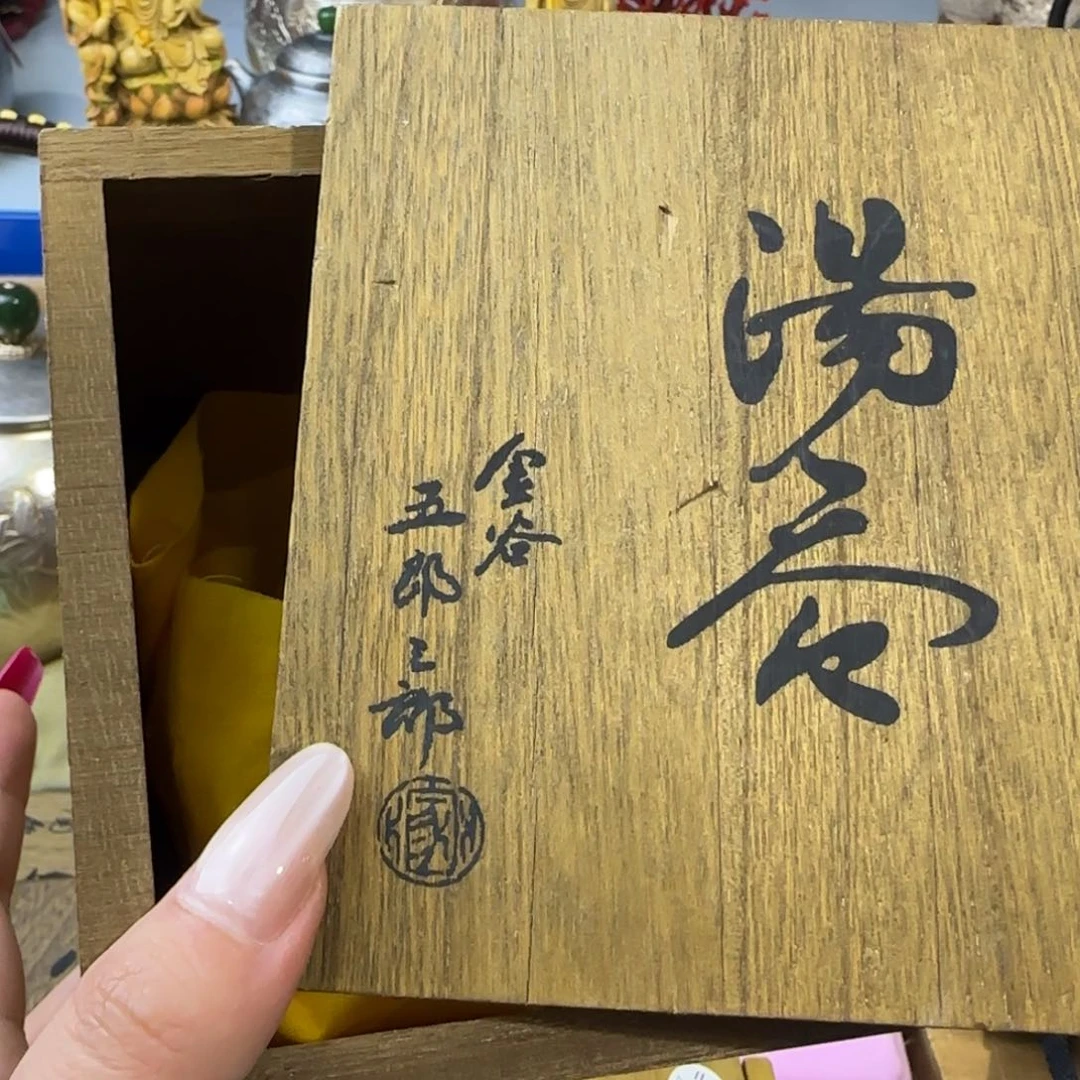 湯
金谷
五郎三郎